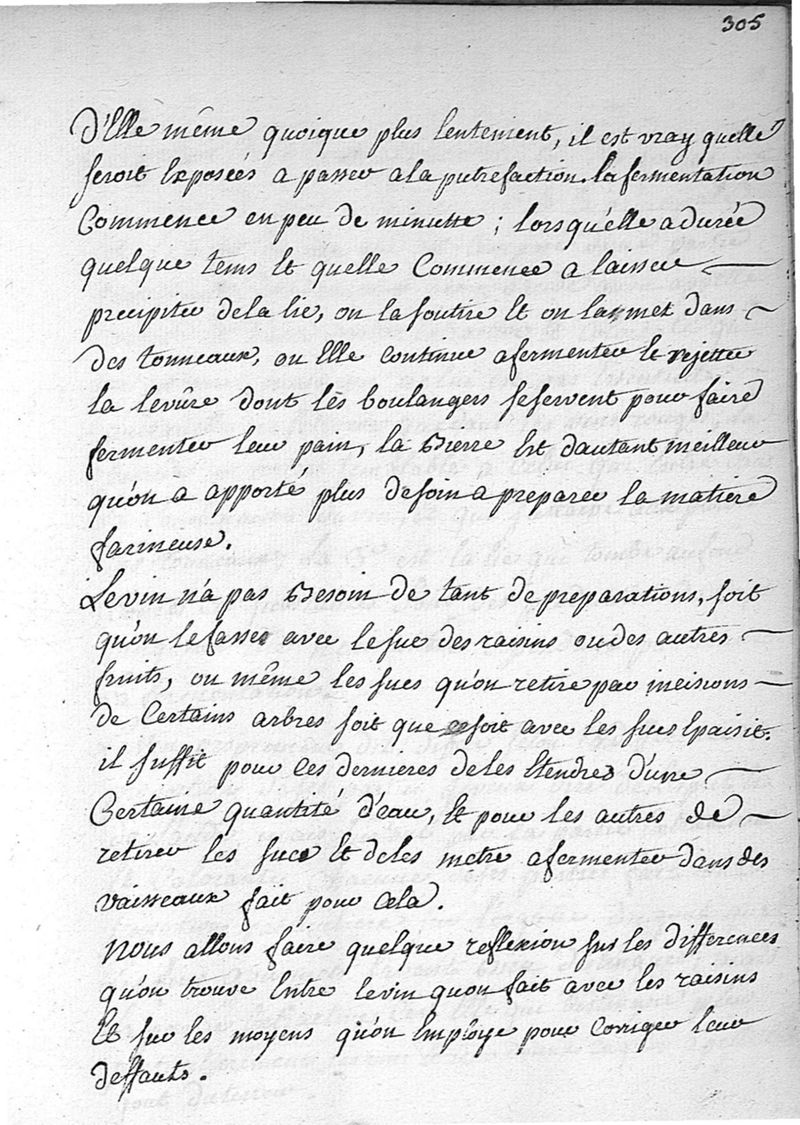 305
D'Elle même quoique plus lentement, il est vray quelle
seroit Exposées a passer ala putrefaction. la fermentation
Commence en peu de minutte ; lorsqu'elle a durée
quelque tems Et quelle Commence a laisser
precipiter dela lie, on la soutire Et on la met dans
des tonneaux, ou Elle continue a fermenter Et rejetter
la levûre dont les boulangers se servent pour faire
fermenter leur pain, la Bierre Est dautant meilleur
qu'on a apporté plus de soin a preparer la matiere
farineuse.
Le vin n'a pas Besoin de tant de preparations, soit
qu'on le fasse avec le suc des raisins ou des autres
fruits, ou même les sucs qu'on retire par incisions
de Certains arbres soit que ce soit avec les sucs Epaisit.
il suffit pour Ces dernieres de les Etendres d'une
Certaine quantité d'eau, Et pour les autres de
retirer les sucs Et de les metre a fermenter dans des
vaisseaux fait pour Cela.
Nous allons faire quelque reflexion sur les differences
qu'on trouve Entre le vin quon fait avec les raisins
Et sur les moyens qu'on Employe pour Corriger leur
deffauts.